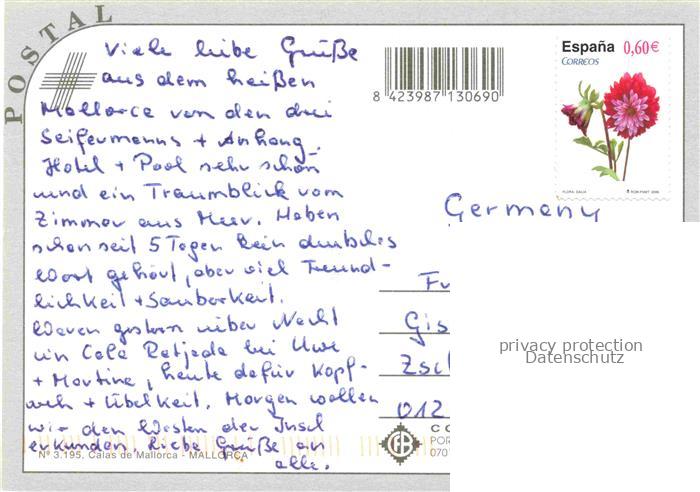 POSTAL
Viele liebe Grüße
aus dem heißen
Mallorca von den drei
Seifermanns + Anhang.
Hotel + Pool sehr schön
und ein Traumblick vom
Zimmer aus Meer. Haben
schon seit 5 Tagen kein deutsches
Wort gehört, aber viel Freund-
lichkeit + Sauberkeit.
Waren gestern über Nacht
in Cala Ratjada bei Uwe
+ Martina, heute dafür Kopf-
weh + Übelkeit. Morgen wollen
wir den Westen der Insel
erkunden. Liebe Grüße an
alle.
Nº 3.195. Calas de Mallorca - MALLORCA
8 423987 130690
España 0,60€
CORREOS
FLORA. DALIA
Germany
Gis
Zsch
012
privacy protection
Datenschutz
CO
POR
070